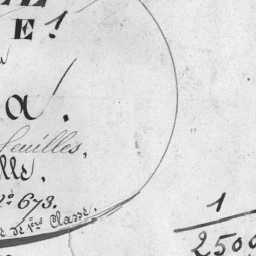 E !
a.
feuilles,
lle.
№ 673.
de 1re Classe.
1
2500